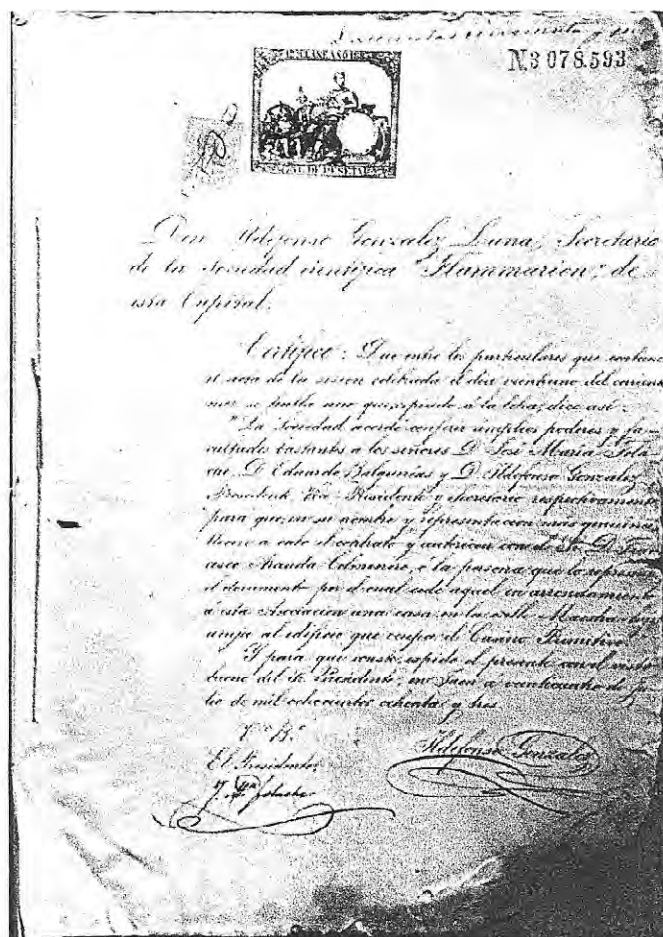 N.3 078.593
Don Ildefonso Gonzalez Luna, Secretario
de la Sociedad cientifica "Flammarion", de
esta Capital.
Certifico: Que entre los particulares que contiene
el acta de la sesion celebrada el dia veintiuno del
mes se halla uno que á la letra, dice asi:
"La Sociedad acordó conferir amplios poderes y fa-
cultades bastantes a los señores D. José María
D. Eduardo Balguerías y D. Ildefonso Gonzalez
Presidente, Vice-Presidente y Secretario respectivamente
para que, en su nombre y representacion más genuina
lleven a cabo el contrato y autoricen con el Sr. D. Fran-
cisco Aranda Colmenero, ó la persona que lo represente
el documento por el cual cede aquel en arrendamiento
á esta Asociacion una casa en la calle
al edificio que ocupa el Casino Primitivo"
Y para que conste, expido el presente con el visto
bueno del Sr. Presidente, en Jaen á veinticuatro de ju-
lio de mil ochocientos ochenta y tres.
Vº Bº
El Presidente,
Ildefonso Gonzalez